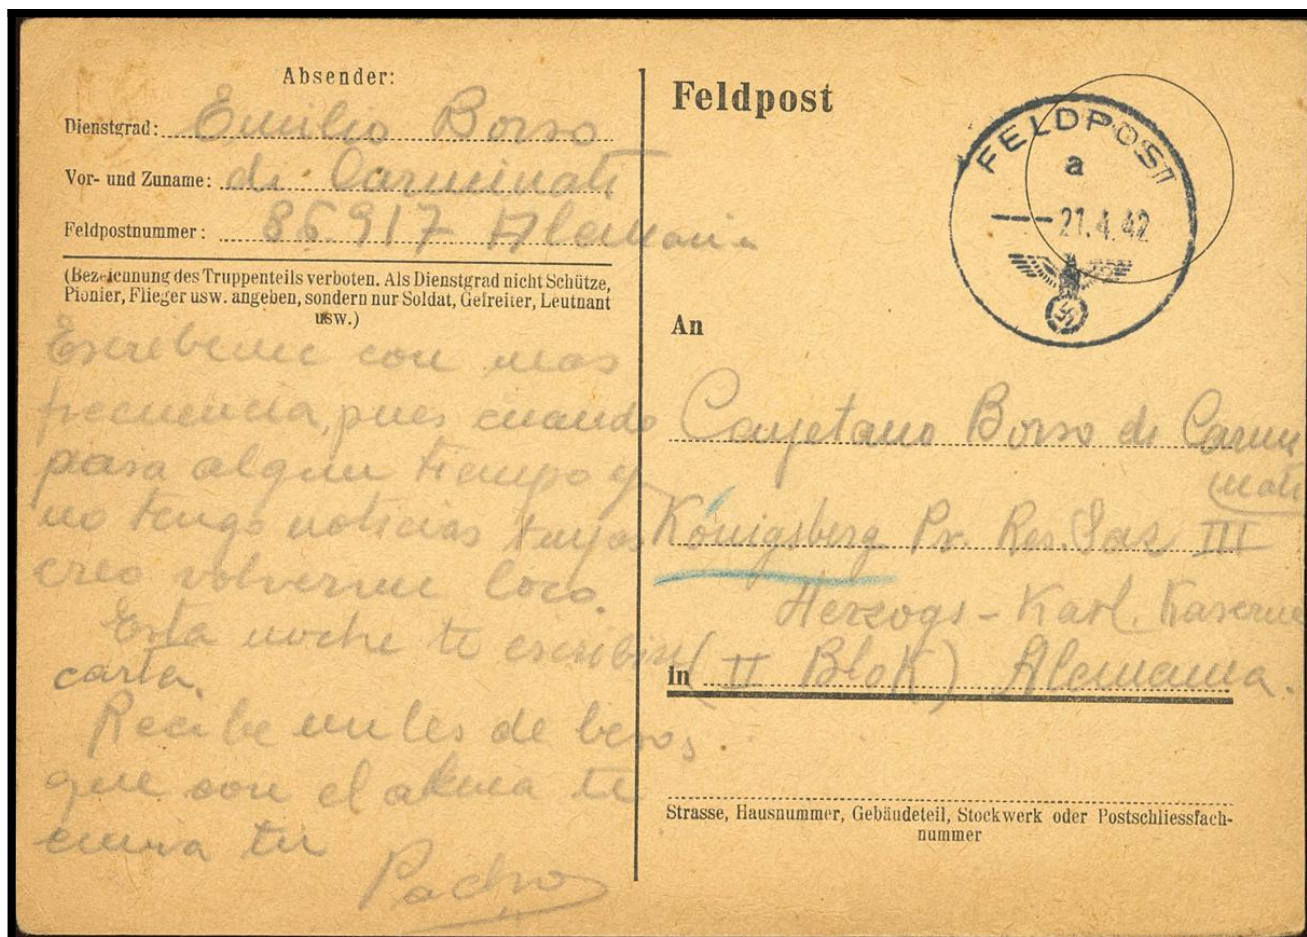 Absender:
Dienstgrad: Emilio Borso
Vor- und Zuname: di Carminati
Feldpostnummer: 86.917 Alemania
(Bezeicnnung des Truppenteils verboten. Als Dienstgrad nicht Schütze,
Pionier, Flieger usw. angeben, sondern nur Soldat, Gefreiter, Leutnant
usw.)
Escribeme con mas
frecuencia, pues cuando
pasa algun tiempo y
no tengo noticias tuyas
creo volverme loco.
Esta noche te escribire
carta.
Recibe miles de besos
que con el alma te
envia tu
Padre
Feldpost
FELDPOST
a
21.4.42
An
Cayetano Borso di Carmi
nati
Königsberg Pr. Res. Laz III
Herzogs-Karl. Kaserne
in (II Blok) Alemania.
Strasse, Hausnummer, Gebäudeteil, Stockwerk oder Postschliessfach-
nummer